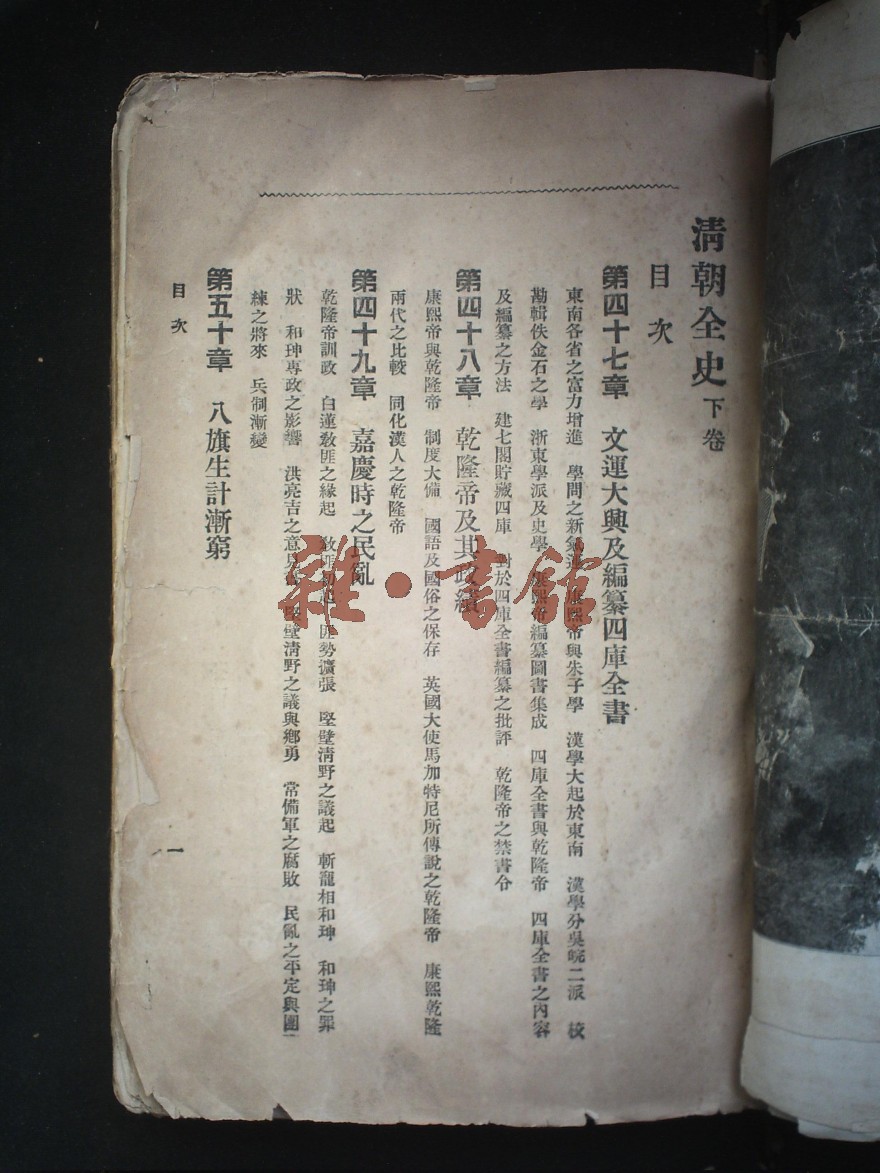 清朝全史 下卷
目次
第四十七章 文運大興及編纂四庫全書
東南各省之富力增進 學問之新氣運 康熙帝與朱子學 漢學大起於東南 漢學分吳皖二派 校
勘輯佚金石之學 浙東學派及史學 康熙帝編纂圖書集成 四庫全書與乾隆帝 四庫全書之內容
及編纂之方法 建七閣貯藏四庫 對於四庫全書編纂之批評 乾隆帝之禁書令
第四十八章 乾隆帝及其政績
康熙帝與乾隆帝 制度大備 國語及國俗之保存 英國大使馬加特尼所傳說之乾隆帝 康熙乾隆
兩代之比較 同化漢人之乾隆帝
第四十九章 嘉慶時之民亂
乾隆帝訓政 白蓮敎匪之緣起 敎匪初起 匪勢擴張 堅壁清野之議起 斬寵相和珅 和珅之罪
狀 和珅專政之影響 洪亮吉之意見 堅壁清野之議與鄉勇 常備軍之腐敗 民亂之平定與團
練之將來 兵制漸變
第五十章 八旗生計漸窮
目次
一
雜·書館